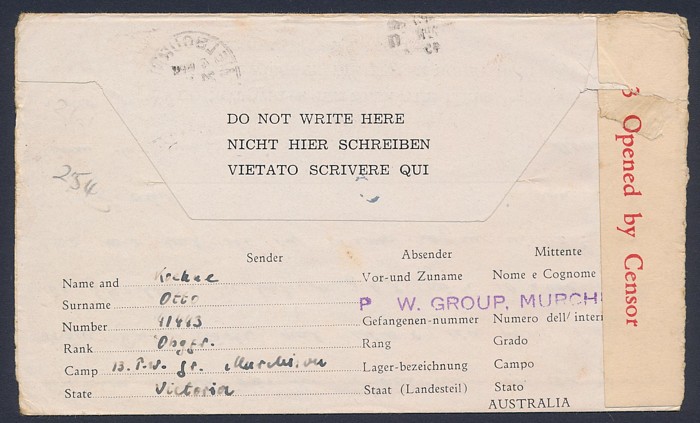 MELBOURNE
DO NOT WRITE HERE
NICHT HIER SCHREIBEN
VIETATO SCRIVERE QUI
254
3 Opened by Censor
Sender Absender Mittente
Name and Vor-und Zuname Nome e Cognome
Surname Otto P W. GROUP, MURCHI
Number 41443 Gefangenen-nummer Numero dell' intern
Rank Obgfr. Rang Grado
Camp 13. P.W. gr. Murchison Lager-bezeichnung Campo
State Victoria Staat (Landesteil) Stato
AUSTRALIA